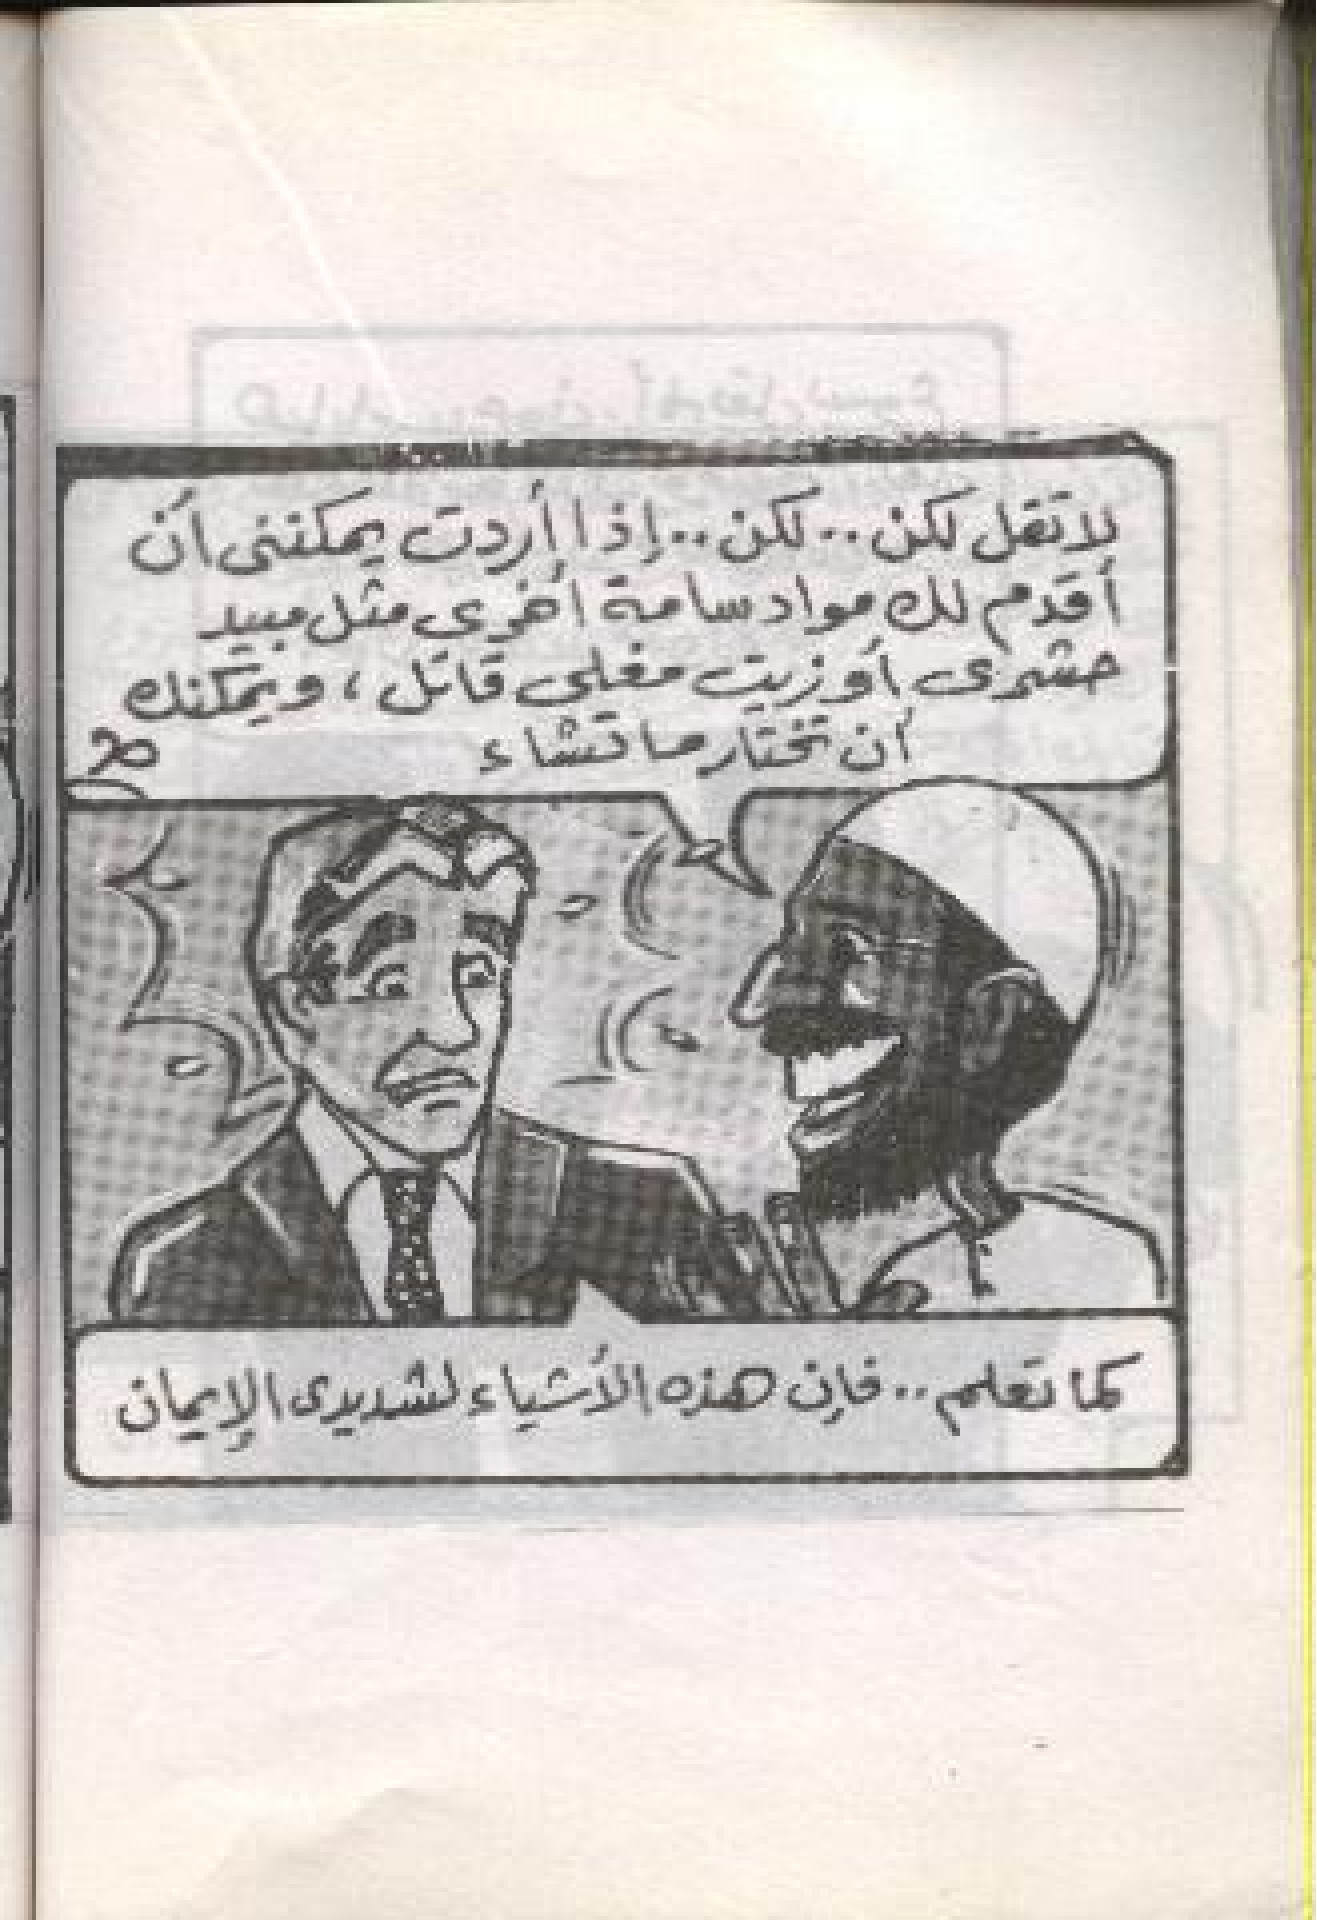 لا تقل لكن.. لكن.. إذا أردت يمكننى أن
أقدم لك مواد سامة أخرى مثل مبيد
حشرى أو زيت مغلى قاتل، ويمكنك
أن تختار ما تشاء
كما تعلم.. فإن هذه الأشياء لشديدى الإيمان